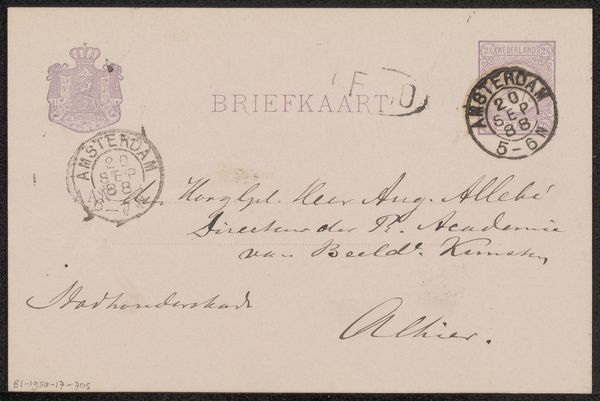 2½ NEDERLAND 2½
BRIEFKAART
F D
AMSTERDAM
20
SEP
88
5-6N
AMSTERDAM
20
SEP
88
Den HoogGel. Heer Aug. Allebé
Directeur der R. Academie
van Beeld. Kunsten
Stadhouderskade
Alhier.
BI-1950-17-705